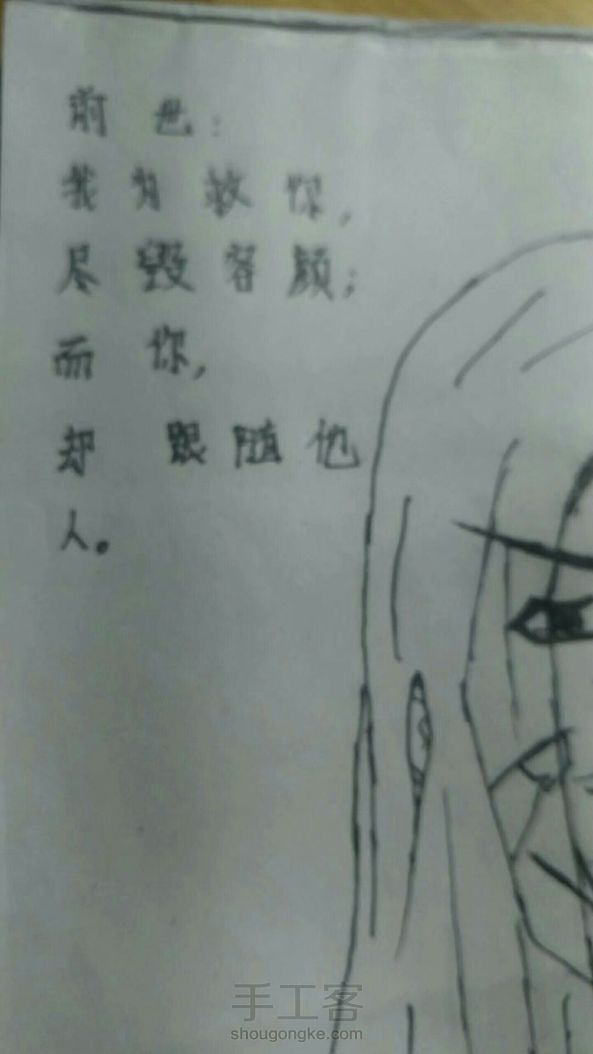 前世:
我为救你,
尽毁容颜;
而你,
却跟随他
人。
手工客
shougongke.com